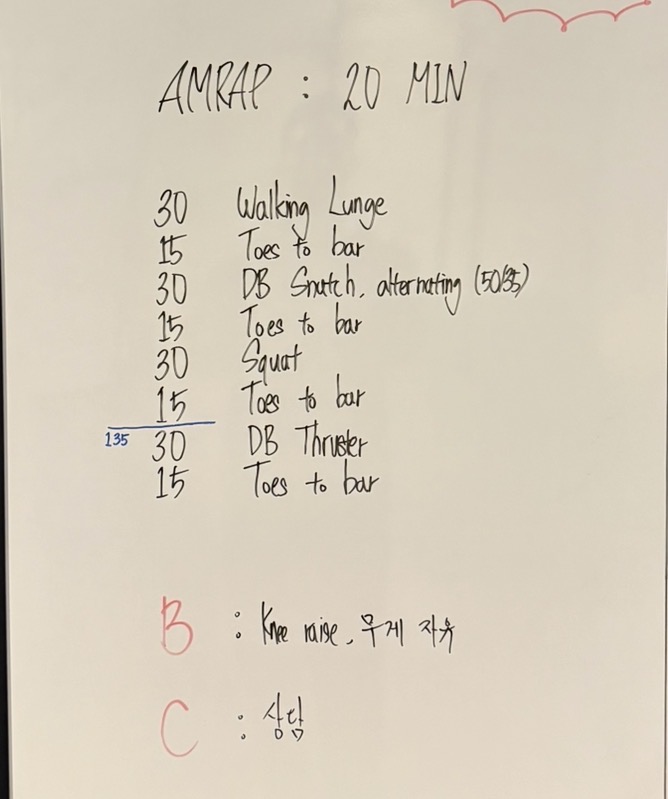 AMRAP : 20 MIN
30 Walking Lunge
15 Toes to bar
30 DB Snatch, alternating (50/35)
15 Toes to bar
30 Squat
15 Toes to bar
135 30 DB Thruster
15 Toes to bar
B : Knee raise, 무게 자유
C : 상담